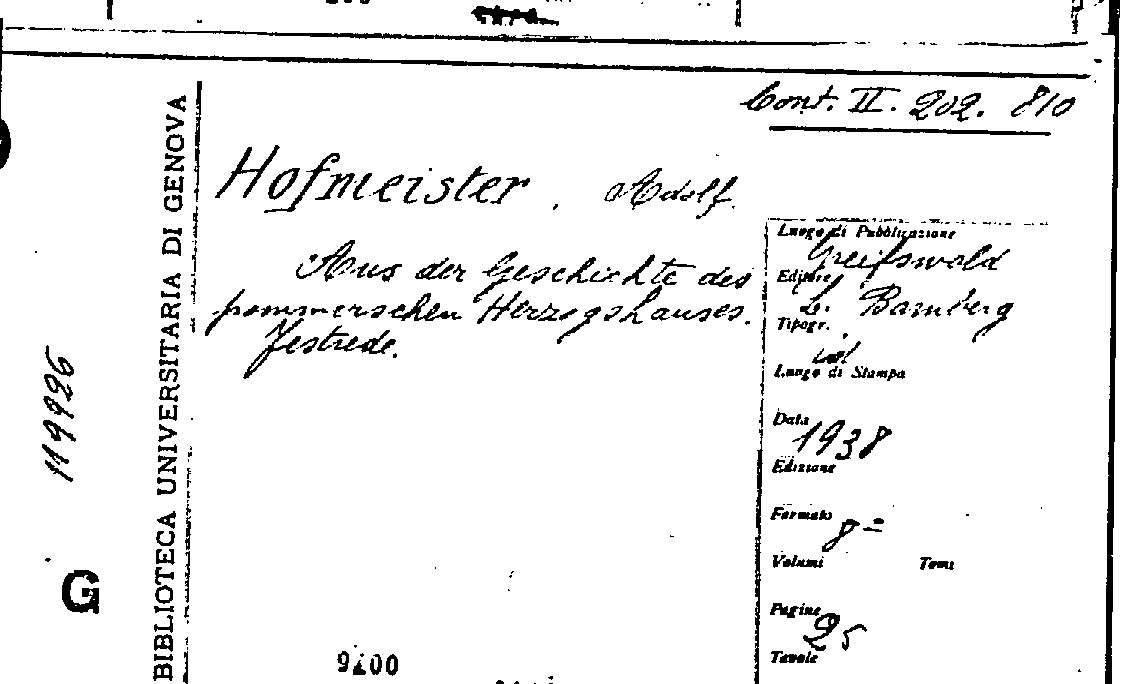 Cont. II. 202. 810
Hofmeister, Adolf.
Aus der Geschichte des
pommerschen Herzogshauses.
Festrede.
Luogo di Pubblicazione
Greifswald
Editore
L. Bamberg
Tipogr.
id
Luogo di Stampa
Data
1938
Edizione
Formato
8=
Volumi Tomi
Pagine
25
Tavole
BIBLIOTECA UNIVERSITARIA DI GENOVA
119926
G